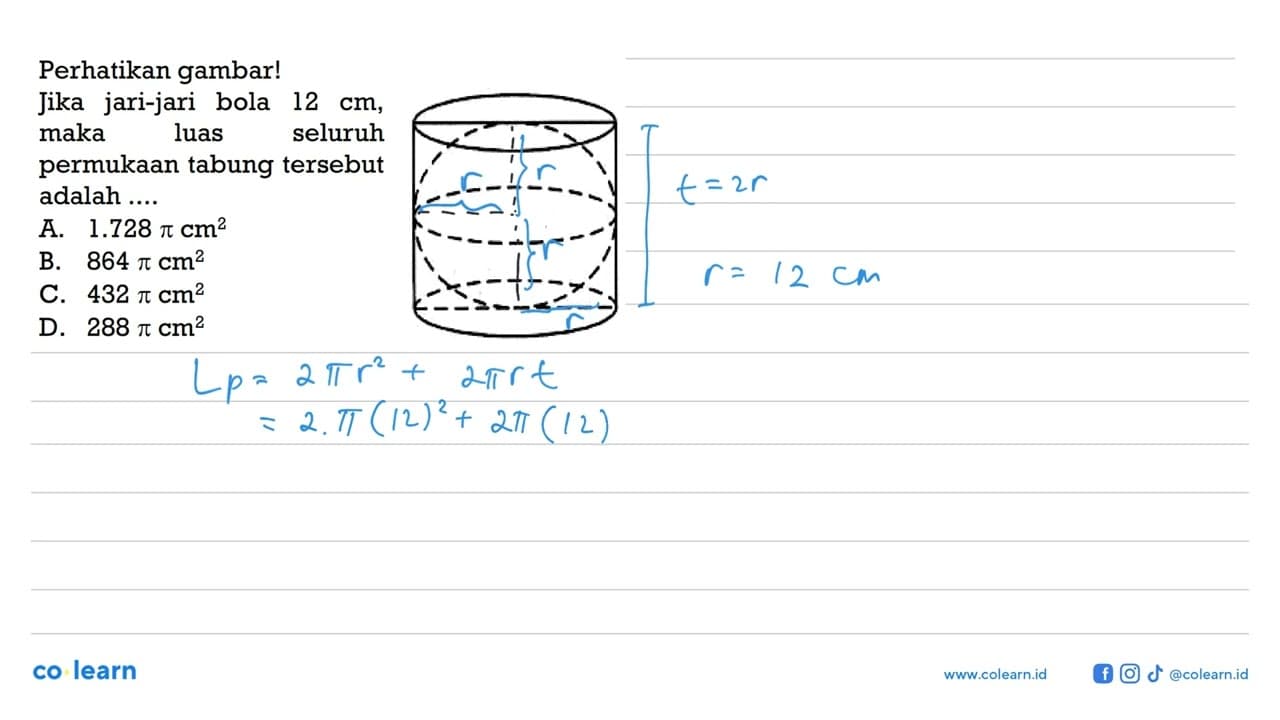 Perhatikan gambar!
Jika jari-jari bola 12 cm,
maka luas seluruh
permukaan tabung tersebut
adalah ....
A. 1.728 π cm²
B. 864 π cm²
C. 432 π cm²
D. 288 π cm²
r
r
r
r
t = 2r
r = 12 cm
Lp = 2πr² + 2πrt
= 2.π(12)² + 2π(12)
co learn
www.colearn.id
@colearn.id